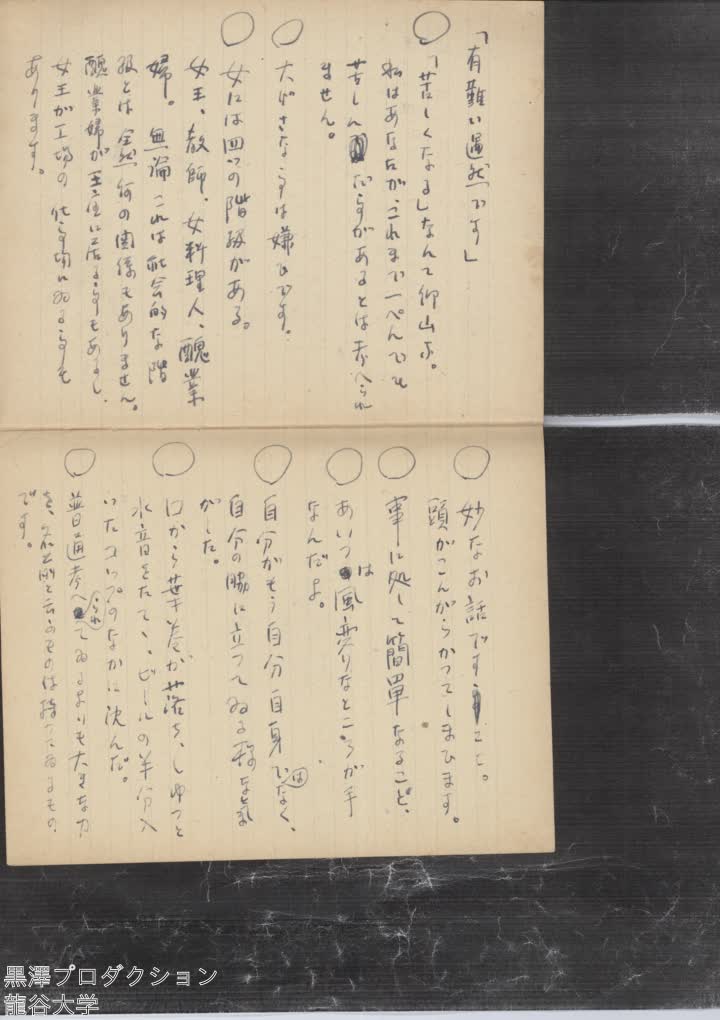 「有難い偶然です」
○「苦しくなる」なんて仰山な。
私はあなたがこれまで一ぺんでも
苦しんだ事があるとは考へられ
ません。
○大げさな事は嫌ひです。
○女には四つの階級がある。
女王、教師、女料理人、醜業
婦。無論これは社会的な階
級とは全然何の関係もありません。
醜業婦が王座に居る事もあるし、
女王が工場の仕事場にゐる事も
あります。
○妙なお話ですこと。
頭がこんがらかつてしまひます。
○事に処して簡単なること、
○あいつは風変りなところが手
なんだよ。
○自分がもう自分自身ではなく、
自分の脇に立つてゐる様な気
がした。
○口から葉巻が落ち、しゆつと
水音をたてゝ、ビールの半分入
いたコップのなかに沈んだ。
○普通考へられてゐるよりも大きな力
を、と云ふものは持つてゐるもの
です。
黒澤プロダクション
龍谷大学